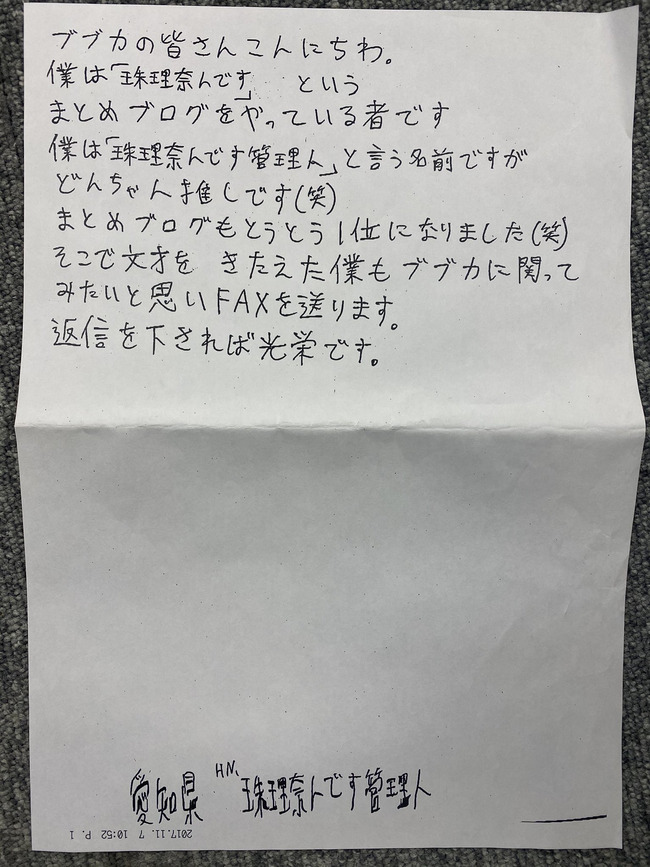 ブブカの皆さんこんにちわ。
僕は「珠理奈んです」 という
まとめブログをやっている者です
僕は「珠理奈んです管理人」と言う名前ですが
どんちゃん推しです(笑)
まとめブログもとうとう1位になりました(笑)
そこで文才を きたえた僕もブブカに関って
みたいと思いFAXを送ります。
返信を下されば光栄です。
愛知県 HN、珠理奈んです管理人
2017.11. 7 10:52 P. 1